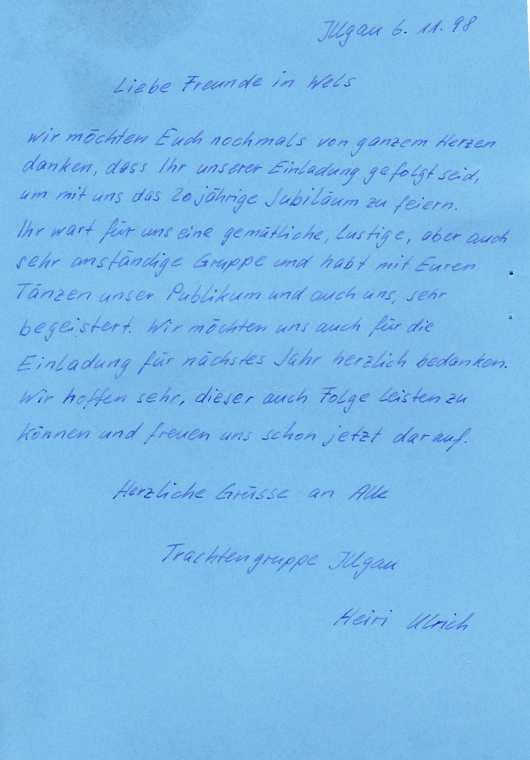 Illgau 6. 11. 98
Liebe Freunde in Wels
wir möchten Euch nochmals von ganzem Herzen
danken, dass Ihr unserer Einladung gefolgt seid,
um mit uns das 20 jährige Jubiläum zu feiern.
Ihr wart für uns eine gemütliche, lustige, aber auch
sehr anständige Gruppe und habt mit Euren
Tänzen unser Publikum und auch uns, sehr
begeistert. Wir möchten uns auch für die
Einladung für nächstes Jahr herzlich bedanken.
Wir hoffen sehr, dieser auch Folge leisten zu
können und freuen uns schon jetzt darauf.
Herzliche Grüsse an Alle
Trachtengruppe Illgau
Heiri Ulrich